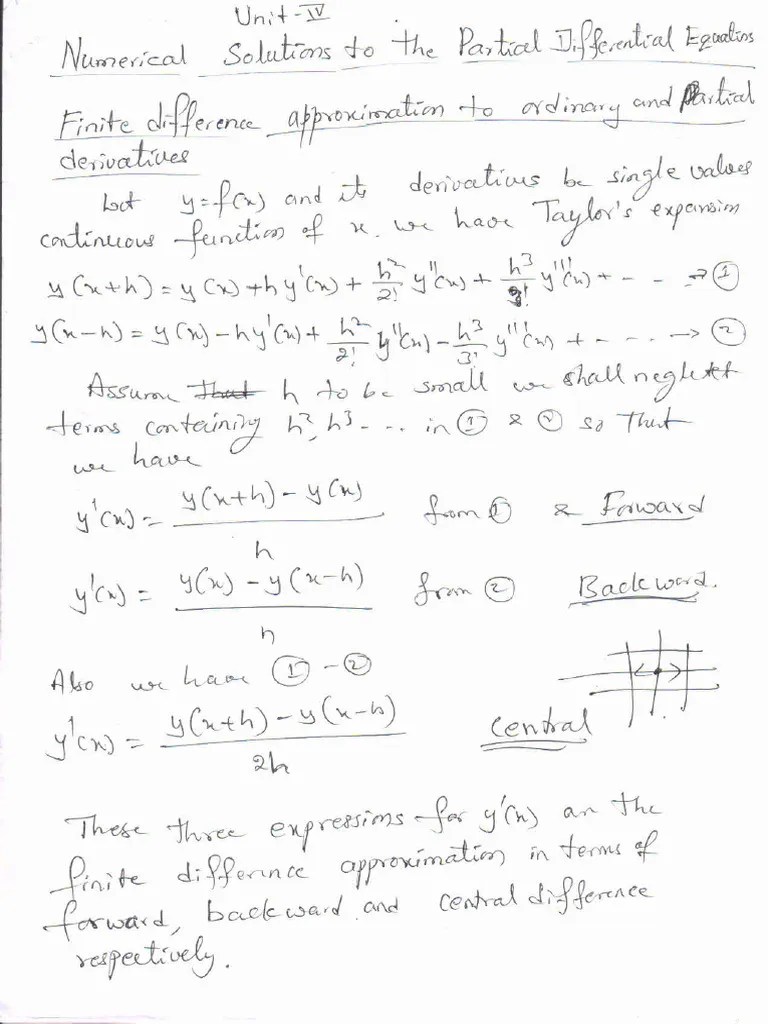 Unit-IV
Numerical Solutions to the Partial Differential Equations
Finite difference approximation to ordinary and Partial
derivatives
Let y=f(x) and its derivatives be single values
continuous function of x. we have Taylor's expansion
y(x+h) = y(x)+hy'(x)+ h²/2! y''(x)+ h³/3! y'''(x)+ - - . . → ①
y(x-h) = y(x)-hy'(x)+ h²/2! y''(x)- h³/3! y'''(x) + - . . . → ②
Assume that h to be small we shall neglect
terms containing h², h³ - - . . in ① & ② so that
we have
y'(x) = (y(x+h) - y(x))/h from ① & Forward
y'(x) = (y(x) - y(x-h))/h from ② Backward.
Also we have ① - ②
y'(x) = (y(x+h) - y(x-h))/2h Central
These three expressions for y'(x) an the
finite difference approximation in terms of
forward, backward and central difference
respectively.